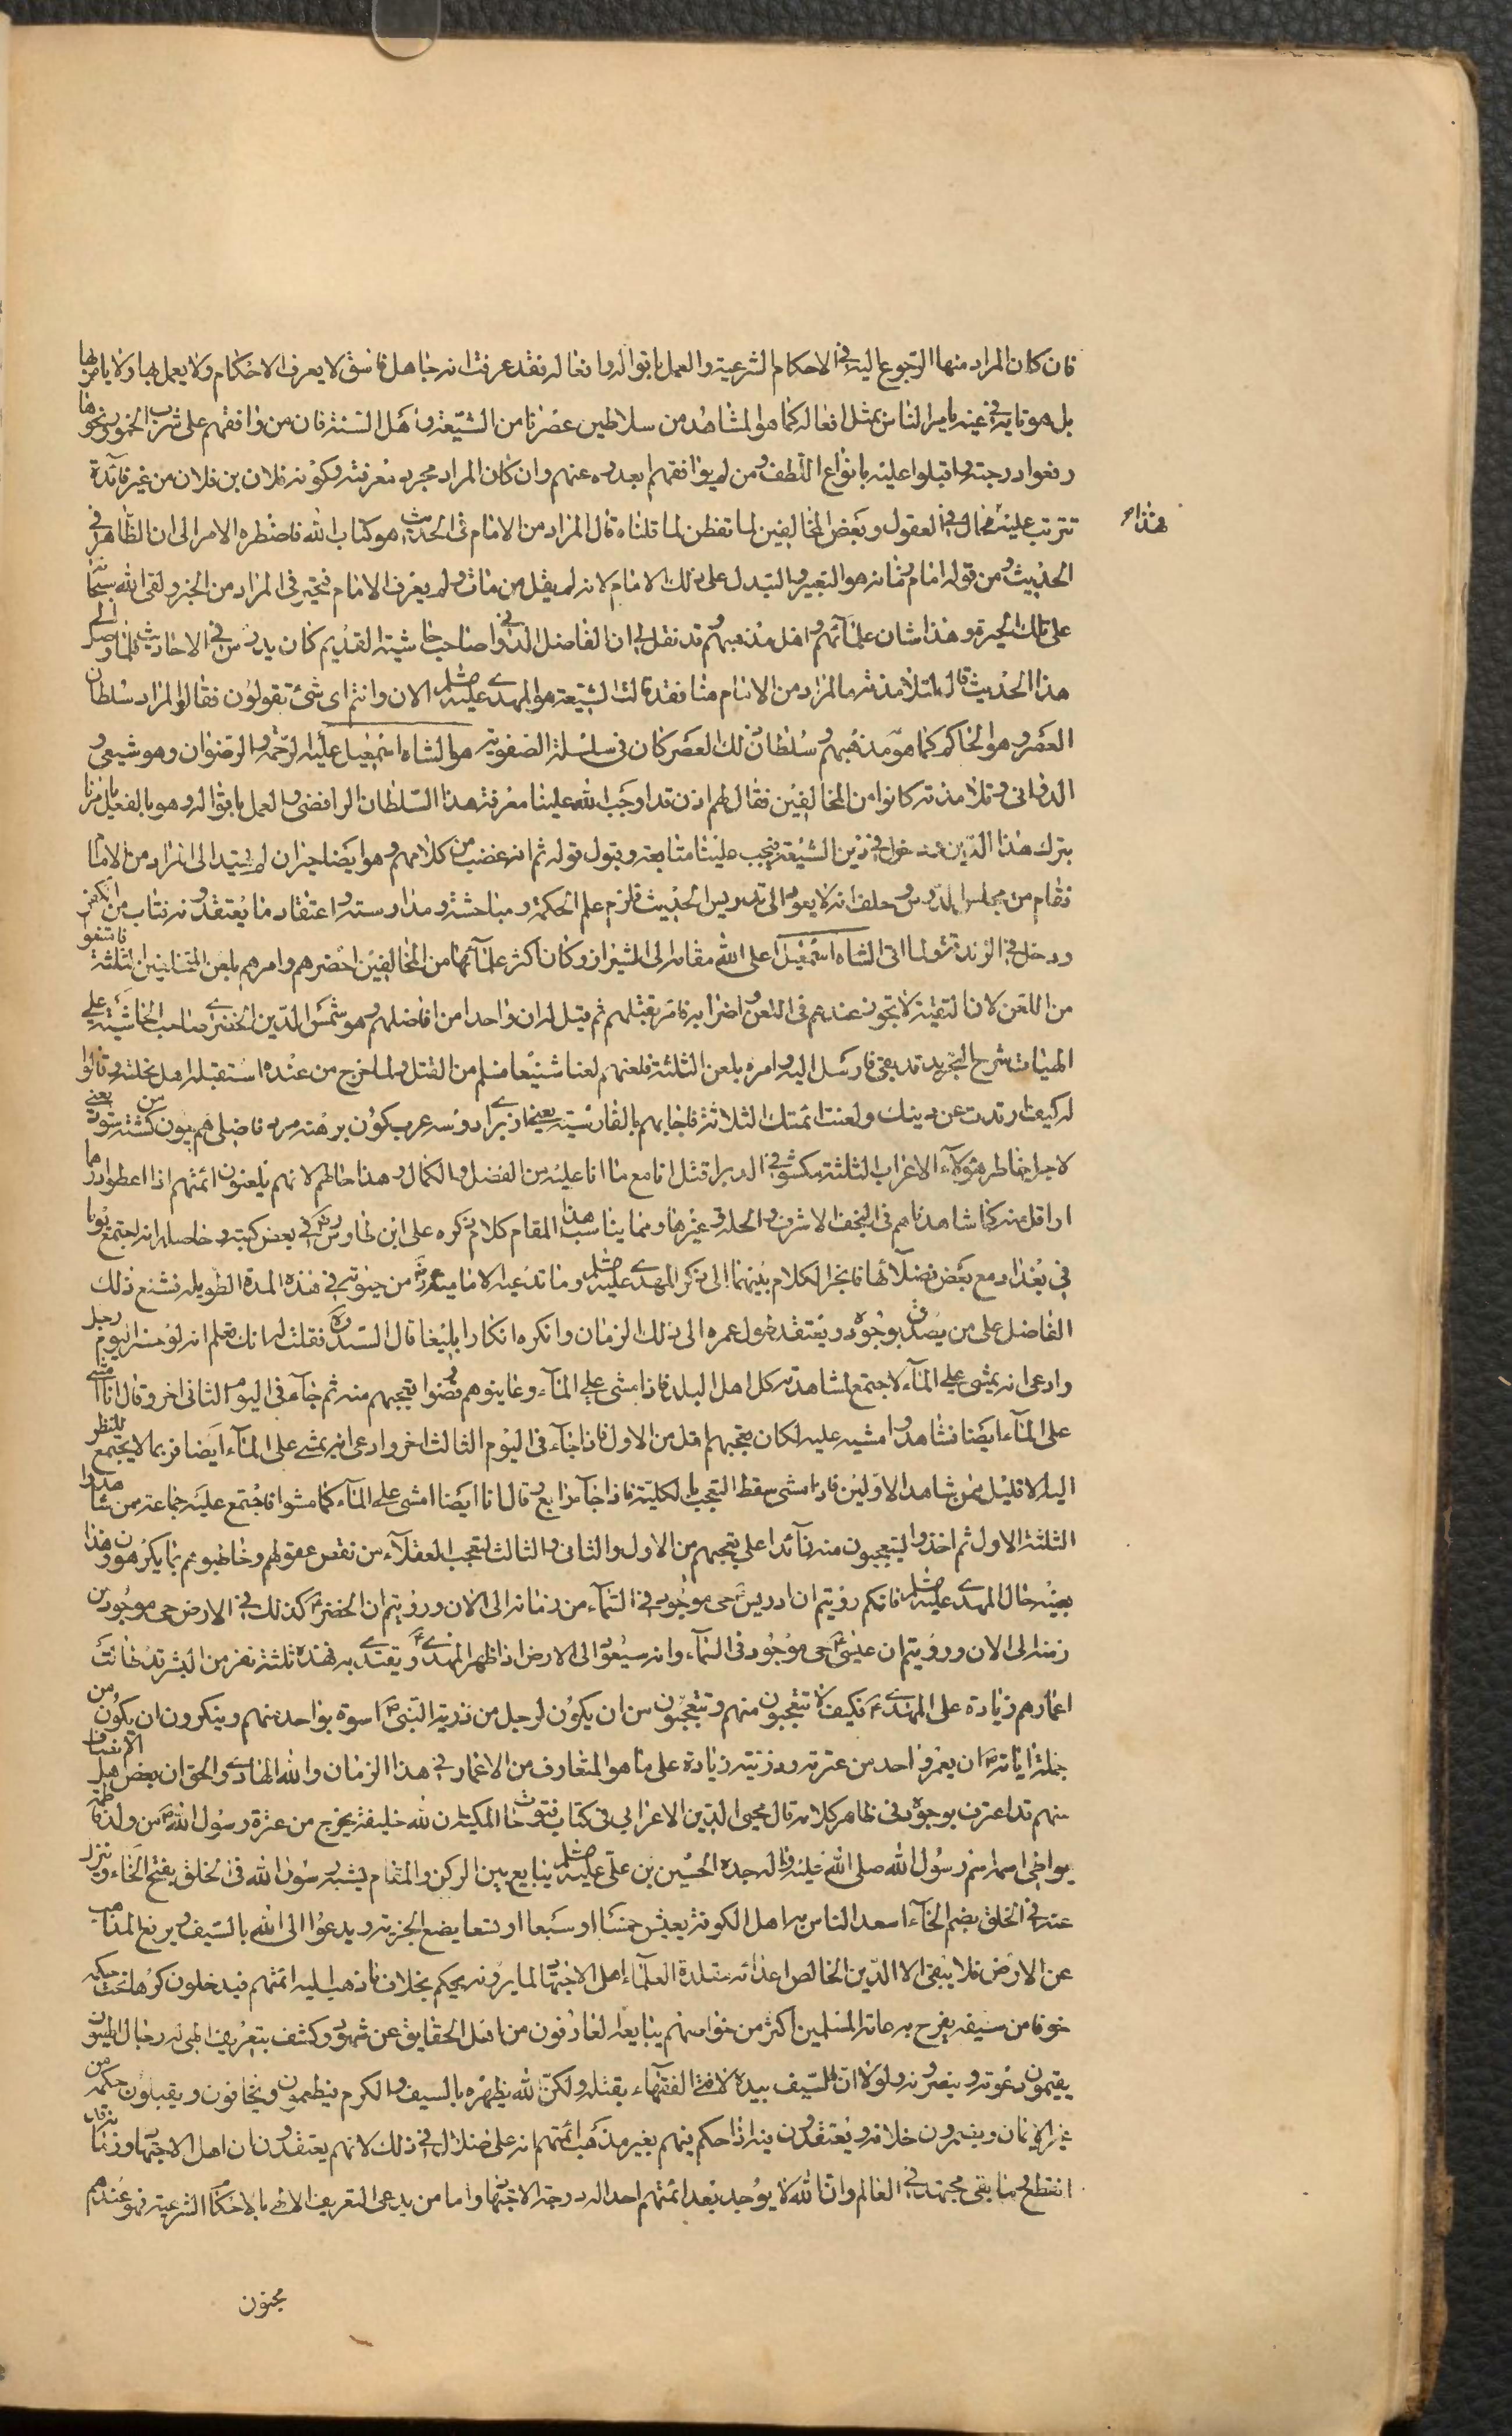 فان كان المراد منها الرّجوع اليه في الاحكام الشرعية والعمل باقواله وافعاله فقد عرفت انه جاهل فاسق لا يعرف الاحكام ولا يعمل بها ولا يامر بها
بل هو تايه في غيه يامر الناس بمثل افعاله كما هو المشاهد من سلاطين عصرنا من الشيعة واهل السنة فان من وافقهم على شرب الخمور ونحوها
رفعوا درجته واقبلوا عليه بانواع اللطف ومن لم يوافقهم ابعدوه عنهم وان كان المراد مجرد معرفته وكونه فلان بن فلان من غير فائدة
تترتب عليه فمحال في العقول وبعض المخالفين لما تفطن لما قلناه قال المراد من الامام في الحديث هو كتاب الله فاضطره الامر الى ان الظاهر في
هذا
الحديث ومن قوله امام زمانه هو التغيير والتبدل على ذلك الامام لانه لم يقل من مات ولم يعرف الامام فتحير في المراد من الخبر ولقى الله سبحانه
على تلك الحيرة وهذا شان علمائهم واهل مذهبهم وقد نقل لي ان الفاضل الدواني صاحب حاشية القديم كان يدرس في الاحاديث فلما وصل الى
هذا الحديث قال لتلامذته ما المراد من الامام هنا فقد قالت الشيعة هو المهدي عليه السلم الان وانتم اي شئ تقولون فقالوا المراد سلطان
العصر وهو الحاكم كما هو مذهبهم وسلطان ذلك العصر كان في سلسلة الصفوية هو الشاه اسمعيل عليه الرحمة والرضوان وهو شيعي و
الدواني وتلامذته كانوا من المخالفين فقال لهم اذن قد اوجب الله علينا معرفة هذا السلطان الرافضي والعمل باقواله وهو بالفعل يامرنا
بترك هذا الدين وندخل في دين الشيعة فيجب علينا متابعته وقبول قوله ثم انه غضب من كلامهم وهو ايضا حيران لم يهتد الى المراد من الامام
فقام من مجلس الدرس وحلف انه لا يعود الى تدريس الحديث فلزم علم الحكمة ومباحثته ومدارسته واعتقاد ما يعتقدونه فتاب من الكفر
ودخل في الزندقة ولما اتى الشاه اسمعيل اعلى الله مقامه الى شيراز وكان اكثر علمائها من المخالفين احضرهم وامرهم بلعن المتخلفين الثلثة فامتنعوا
من اللعن لان التقية لا تجوز عندهم في اللعن واضرابه فامر بقتلهم ثم قيل له ان واحدا من افاضلهم وهو شمس الدين الخفري صاحب الحاشية على
الهيات شرح التجريد قد بقى فارسل اليه وامره بلعن الثلثة فلعنهم لعنا شنيعا فسلم من القتل ولما خرج من عنده استقبله اهل نحلته وقالوا
له كيف ارتدت عن دينك ولعنت ائمتك الثلاثة فاجابهم بالفارسية يعنى از براى دو سه عرب كون برهنه مرد فاضلى هم چون من كشته شود يعنى
لاجل خاطر هؤلاء الاعراب الثلثة مكشوفي الدبر اقتل انا مع ما انا عليه من الفضل والكمال وهذا حالهم لانهم يلعنون ائمتهم اذا اعطوا درهما
او اقل منه كما شاهدناهم في النجف الاشرف والحلة وغيرها ومما يناسب هذا المقام كلام ذكره على ابن طاوس ره في بعض كتبه وحاصله انه اجتمع يوما
في بغداد مع بعض فضلائها فانجر الكلام بينهما الى ذكر المهدي عليه السلم وما تدعيه الامامية من حيوته في هذه المدة الطويله فشنع ذلك
الفاضل على من يصدق بوجوده ويعتقد طول عمره الى ذلك الزمان وانكره انكارا بليغا قال السيد ره فقلت له انك تعلم انه لو حضر اليوم رجل
وادعى انه يمشي على الماء لاجتمع لمشاهدته كل اهل البلد فاذا مشى على الماء وعاينوهم وقضوا تعجبهم منه ثم جاء في اليوم الثاني اخر وقال انا امشي
على الماء ايضا فشاهدوا مشيه عليه لكان تعجبهم اقل من الاول فاذا جاء في اليوم الثالث اخر وادعى انه يمشي على الماء ايضا فربما لا يجتمع للنظر
اليه الا قليل ممن شاهد الاولين فاذا مشى سقط التعجب بالكلية فاذا جاء رابع وقال انا ايضا امشي على الماء كما مشوا فاجتمع عليه جماعة ممن شاهدوا
الثلثة الاول ثم اخذوا يتعجبون منه زائدا على تعجبهم من الاول والثاني والثالث لتعجب العقلاء من نقص عقولهم وخاطبوهم بما يكرهون وهذا
بعينه حال المهدي عليه السلم فانكم رويتم ان ادريس ع حى موجود في السماء من زمانه الى الان ورويتم ان الخضر ع كذلك في الارض حى موجود من
زمنه الى الان ورويتم ان عيسى ع حى موجود في السماء وانه سيعود الى الارض اذا ظهر المهدي ع ويقتدي به فهذه ثلثة نفر من البشر قد طالت
اعمارهم زيادة على المهدي ع فكيف لا تتعجبون منهم وتتعجبون من ان يكون لرجل من ذرية النبي ص اسوة بواحد منهم وينكرون ان يكون من
جملة اياته ص ان يعمر واحد من عترته وذريته زيادة على ما هو المتعارف من الاعمار في هذا الزمان والله الهادي والحق ان بعض اهل الانصاف
منهم قد اعترف بوجوده في ظاهر كلامه قال محيي الدين الاعرابي في كتاب فتوحات المكية ان لله خليفة يخرج من عترة رسول الله ص من ولد فاطمة
يواطي اسمه اسم رسول الله صلى الله عليه واله جده الحسين بن علي عليه السلم يبايع بين الركن والمقام يشبه رسول الله في الخلق بفتح الخاء وينزل
عنه في الخلق بضم الخاء اسعد الناس به اهل الكوفة يعيش خمسا او سبعا او تسعا يضع الجزية ويدعوا الى الله بالسيف ويرفع المذاهب
عن الارض فلا يبقى الا الدين الخالص اعدائه مقلدة العلماء اهل الاجتهاد لما يرونه يحكم بخلاف ما ذهب اليه ائمتهم فيدخلون كرها تحت حكمه
خوفا من سيفه يفرح به عامة المسلمين اكثر من خواصهم يبايعه العارفون من اهل الحقايق عن شهود وكشف بتعريف الهي له رجال الهيون
يقيمون دعوته وينصرونه ولولا ان السيف بيده لافتى الفقهاء بقتله ولكن الله يظهره بالسيف والكرم فيطمعون ويخافون ويقبلون حكمه من
غير ايمان ويضمرون خلافه ويعتقدون فيه اذا حكم فيهم بغير مذهب ائمتهم انه على ضلال في ذلك لانهم يعتقدون ان اهل الاجتهاد وزمانه قد
انقطع وما بقى مجتهد في العالم وان الله لا يوجد بعد ائمتهم احدا له درجة الاجتهاد واما من يدعى التعريف الالهي بالاحكام الشرعية فهو عندهم
مجنون